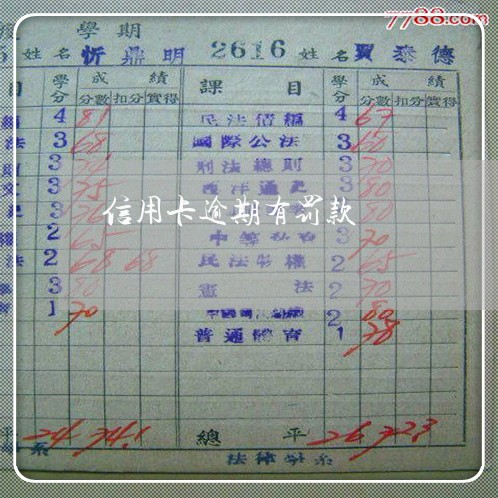 7788.com
學期
姓名 忻鼎明 2616 姓名 賈泰德
目 學分 成績 課目 學分 成績
分數 扣分 實得 分數 扣分 實得
4 81 民法債編 4 67
法 3 68 國際公法 3 60
3 刑法總則 3 70
3 75 西洋通史 3 80
信用卡逾期有罰款
2 65 3 70
法 2 68 68 民法物權 2 65
3 80 憲法 2 70
1 70 2 80
普通體育 1 78
平 24 74.1 總平 26 72.3
系 法律學系